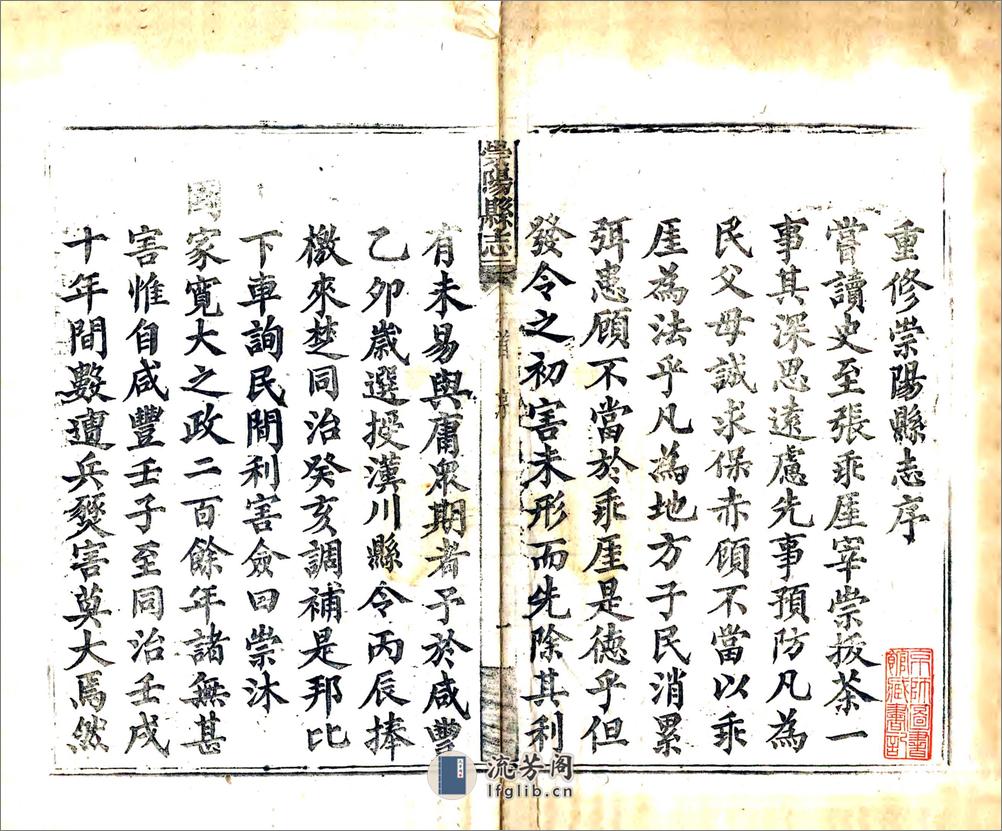 重修崇陽縣志序
嘗讀史至張乖厓宰崇拔茶一
事其深思遠慮先事預防凡為
民父母誠求保赤顧不當以乖
厓為法乎凡為地方子民消累
弭患顧不當於乖厓是德乎但
發令之初害未形而先除其利
崇陽縣志
首 序
一
有未易與庸眾期者予於咸豐
乙卯歲選授漢川縣令丙辰捧
檄來楚同治癸亥調補是邦比
下車詢民間利害僉曰崇沐
國家寬大之政二百餘年諸無甚
害惟自咸豐壬子至同治壬戌
十年間數遭兵燹害莫大焉然
京師圖書
館藏書記
流芳阁
lfglib.cn